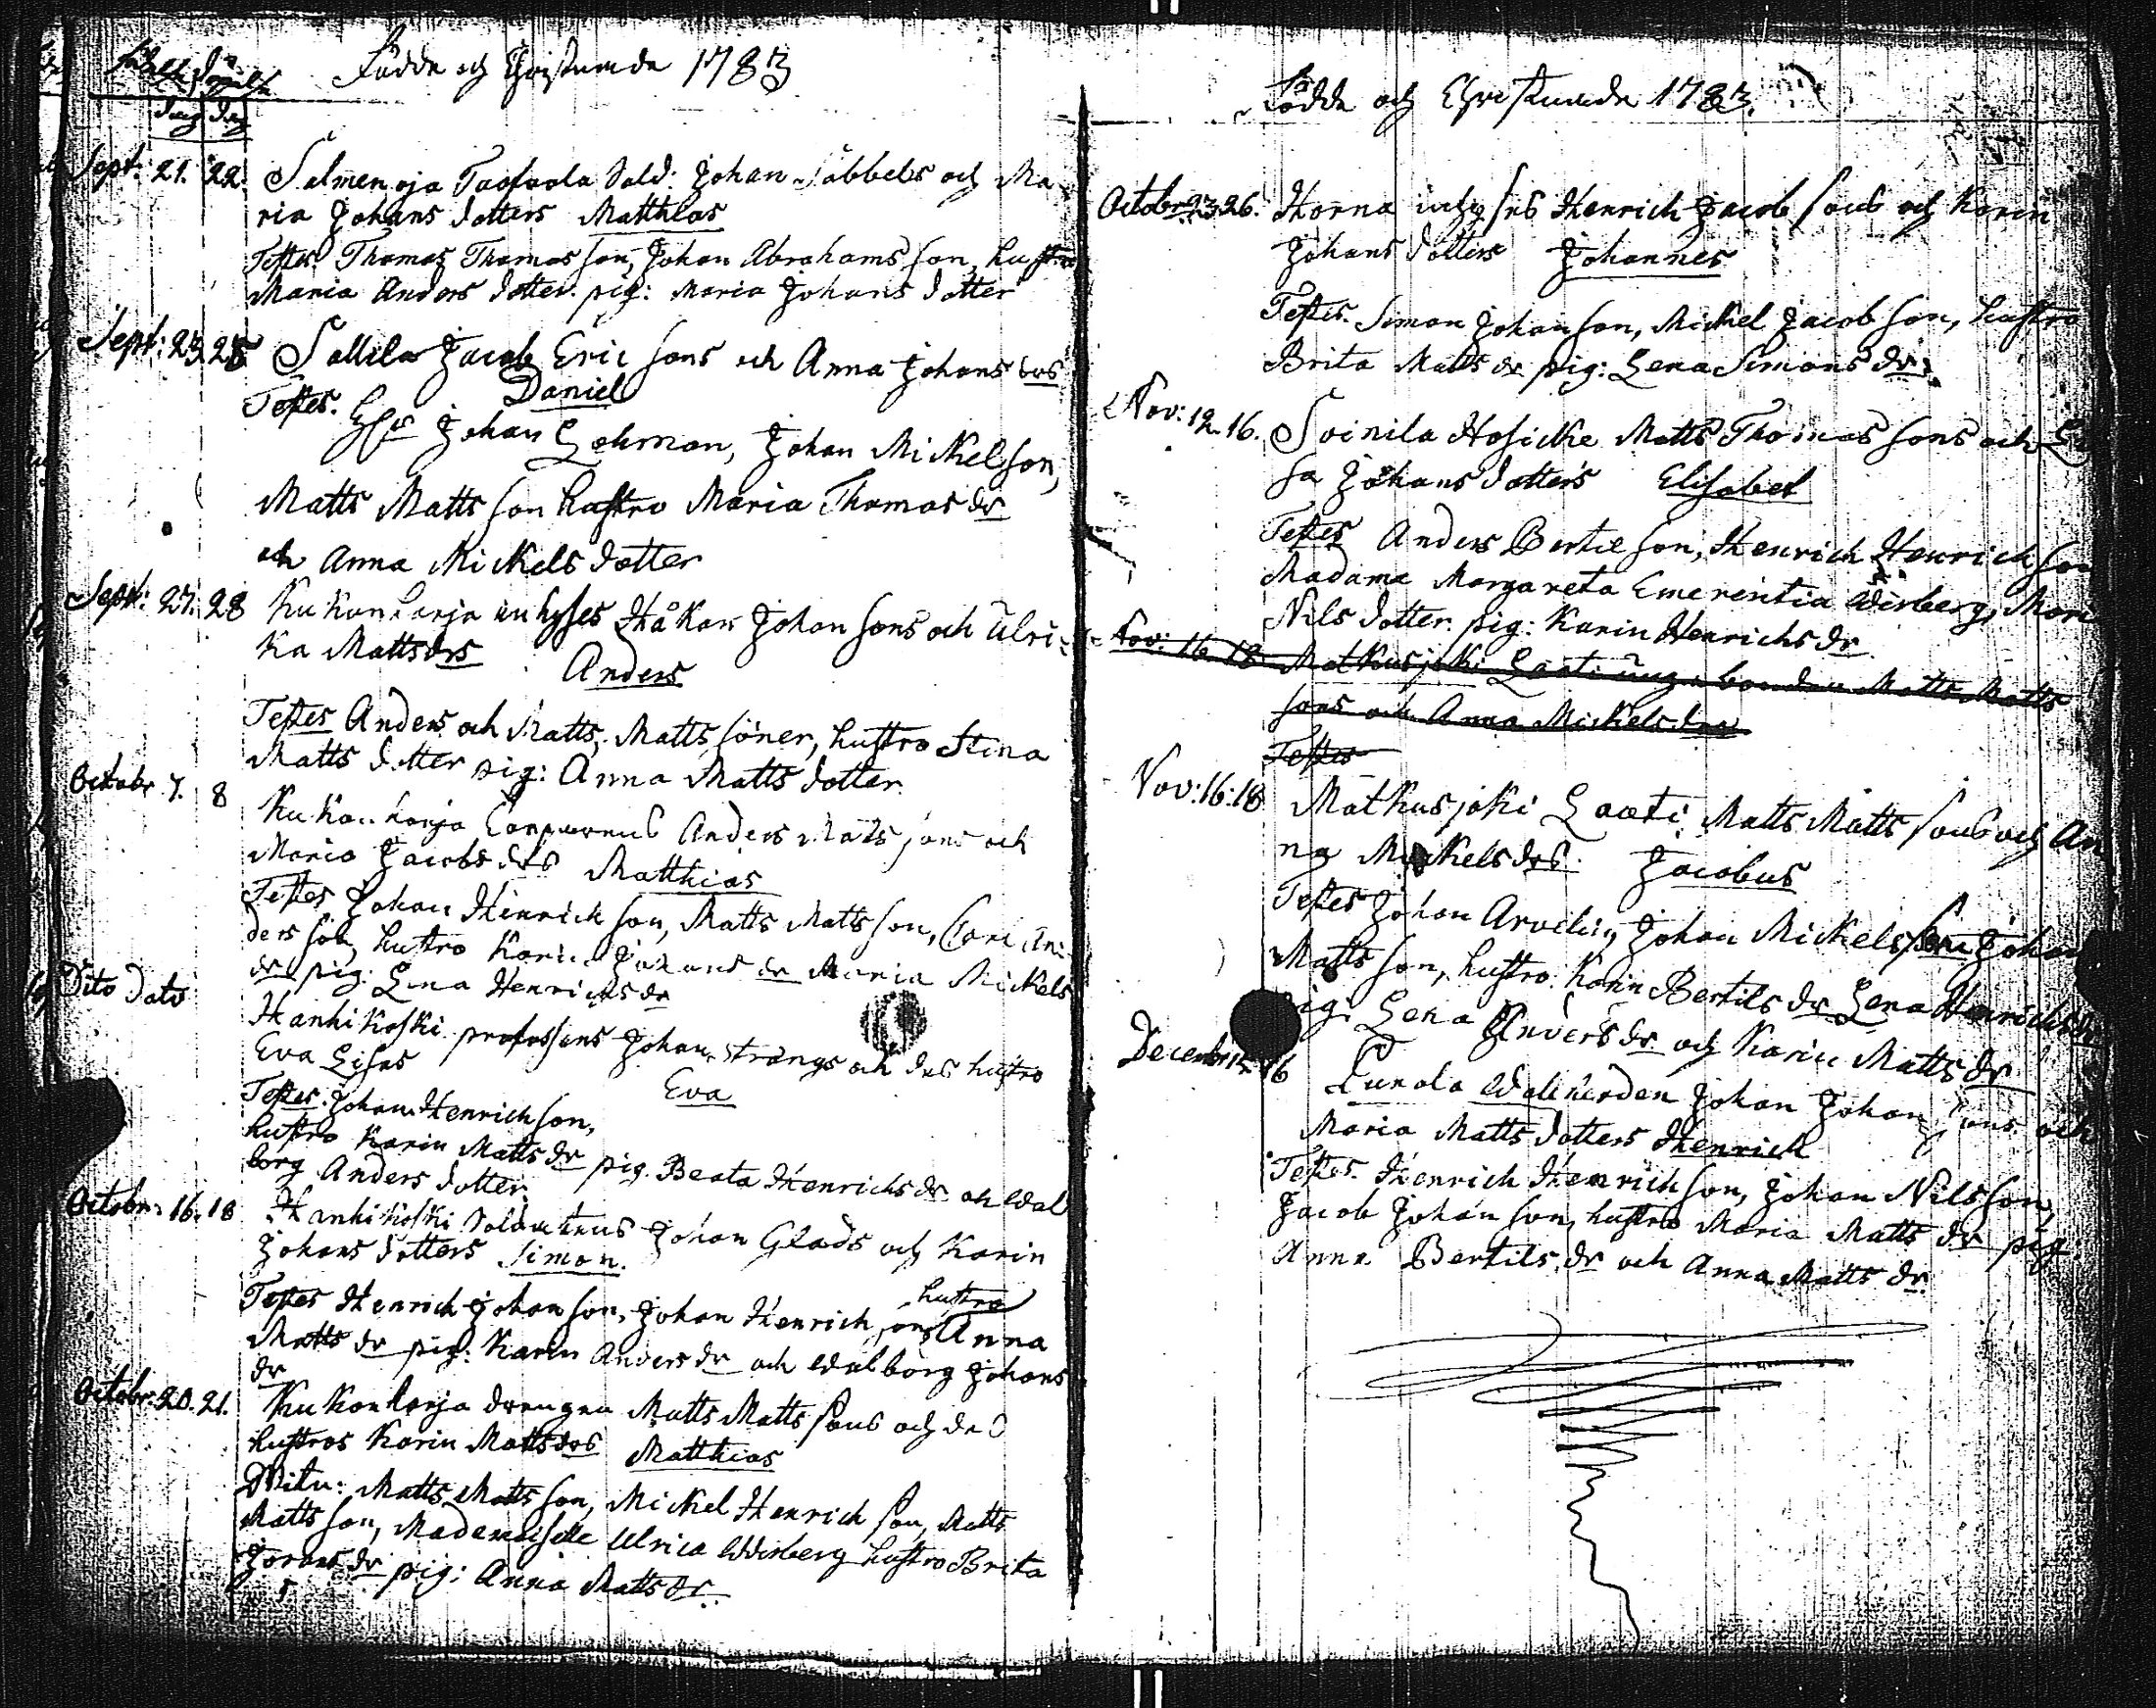 Födde och Christnade 1783
dag dag
Sept: 21. 22. Selmenoja Sold: Johan Sabbels och Ma
ria Johans dotters Matthias
Testes Thomas Thomas son, Johan Abrahams son, hustro
Maria Anders dotter. pig: Maria Johans dotter
Sept: 23 28 Sallila Jacob Eric sons och Anna Johans drs
Daniel
Testes. Johan Lehman, Johan Mickelson,
Matts Matts son hustro Maria Thomas dr
och Anna Mickels dotter
Sept: 27. 28 Kukonharja inhyses Håkan Johan sons och Ulri
ka Matts drs Anders
Testes Anders och Matts, Matts söner, hustro Stina
Matts dotter pig: Anna Matts dotter
Octobr 7. 8 Kukonharja Anders Mats sons och
Maria Jacobs drs Matthias
Testes Johan Henrich son, Matts Matts son, An
ders son, hustro Karin Johans dr Maria Mickels
dr pig: Lena Henrichs dr
Dito Dato Hanhikoski profossens Johan Strångs och des hustro
Eva Lisas Eva
Testes. Johan Henrich son,
hustro Karin Matts dr pig. Beata Henrichs dr och Wal
borg Anders dotter.
Octobr: 16. 18 Hanhikoski Soldatens Johan Glads och Karin
Johans dotters Simon.
Testes Henrich Johan son, Johan Henrich son, hustro Anna
Matts dr pig: Karin Anders dr och Walborg Johans
dr
Octobr. 20. 21. Kukonharja drengen Matts Matts sons och des
hustros Karin Matts drs Matthias
Witn: Matts Matts son, Mickel Henrich son, Matts
Matts son, Mademoiselle Ulrica Widberg hustro Brita
Jörans dr pig: Anna Matts dr.
Födde och Christnade 1783.
Octobr 23 26. Horna inhyses Henrich Jacob sons och Karin
Johans dotters Johannes
Testes. Simon Johan son, Mickel Jacob son, hustro
Brita Matts dr pig: Lena Simons dr.
Nov: 12. 16. Soinila Hosicke Matts Thomas sons och Li
sa Johans dotters Elisabet
Testes Anders Bertil son, Henrich Henrich son
Madame Margareta Emerentia Widberg, Mari
Nils dotter. pig: Karin Henrichs dr
Nov: 16. 18 Matkusjoki Laati unga bonden Matts Matts
sons och Anna Mickels drs
Testes
Nov: 16. 18 Matkusjoki Laati Matts Matts sons och An
na Mickels drs. Jacobus
Testes Johan Arvelin, Johan Mickelsson Johan
Matts son, hustro Karin Bertils dr Lena Henrichs dr
pig. Lena Anders dr och Karin Matts dr
Decembr 15 16 Walherden Johan Johan sons och
Maria Matts dotters Henrich
Testes. Henrich Henrich son, Johan Nils son,
Jacob Johan son, hustro Maria Matts dr pig.
Anna Bertils dr och Anna Matts dr